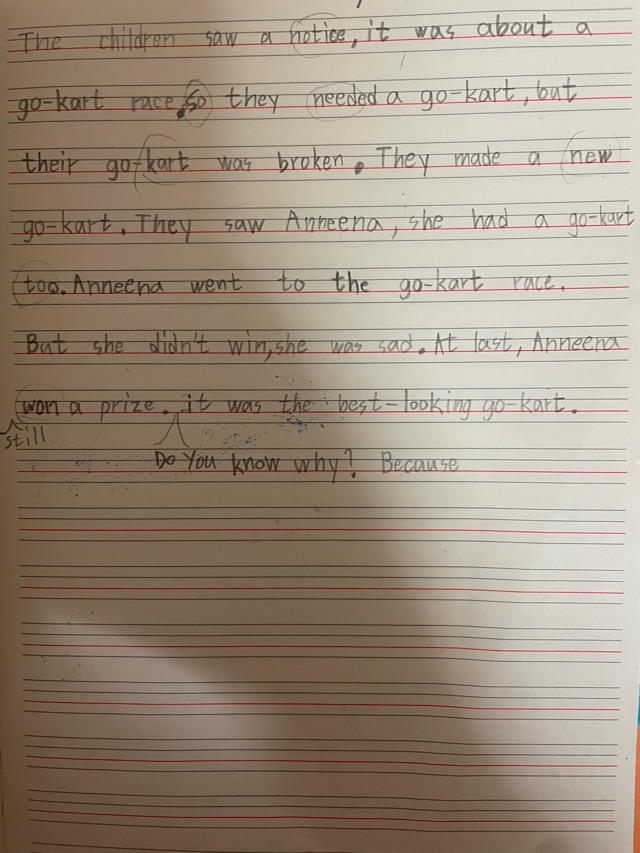 The children saw a notice, it was about a
go-kart race. so they needed a go-kart, but
their go-kart was broken. They made a new
go-kart. They saw Anneena, she had a go-kart
too. Anneena went to the go-kart race.
But she didn't win, she was sad. At last, Anneena
won a prize. it was the best-looking go-kart.
still
Do You know why? Because